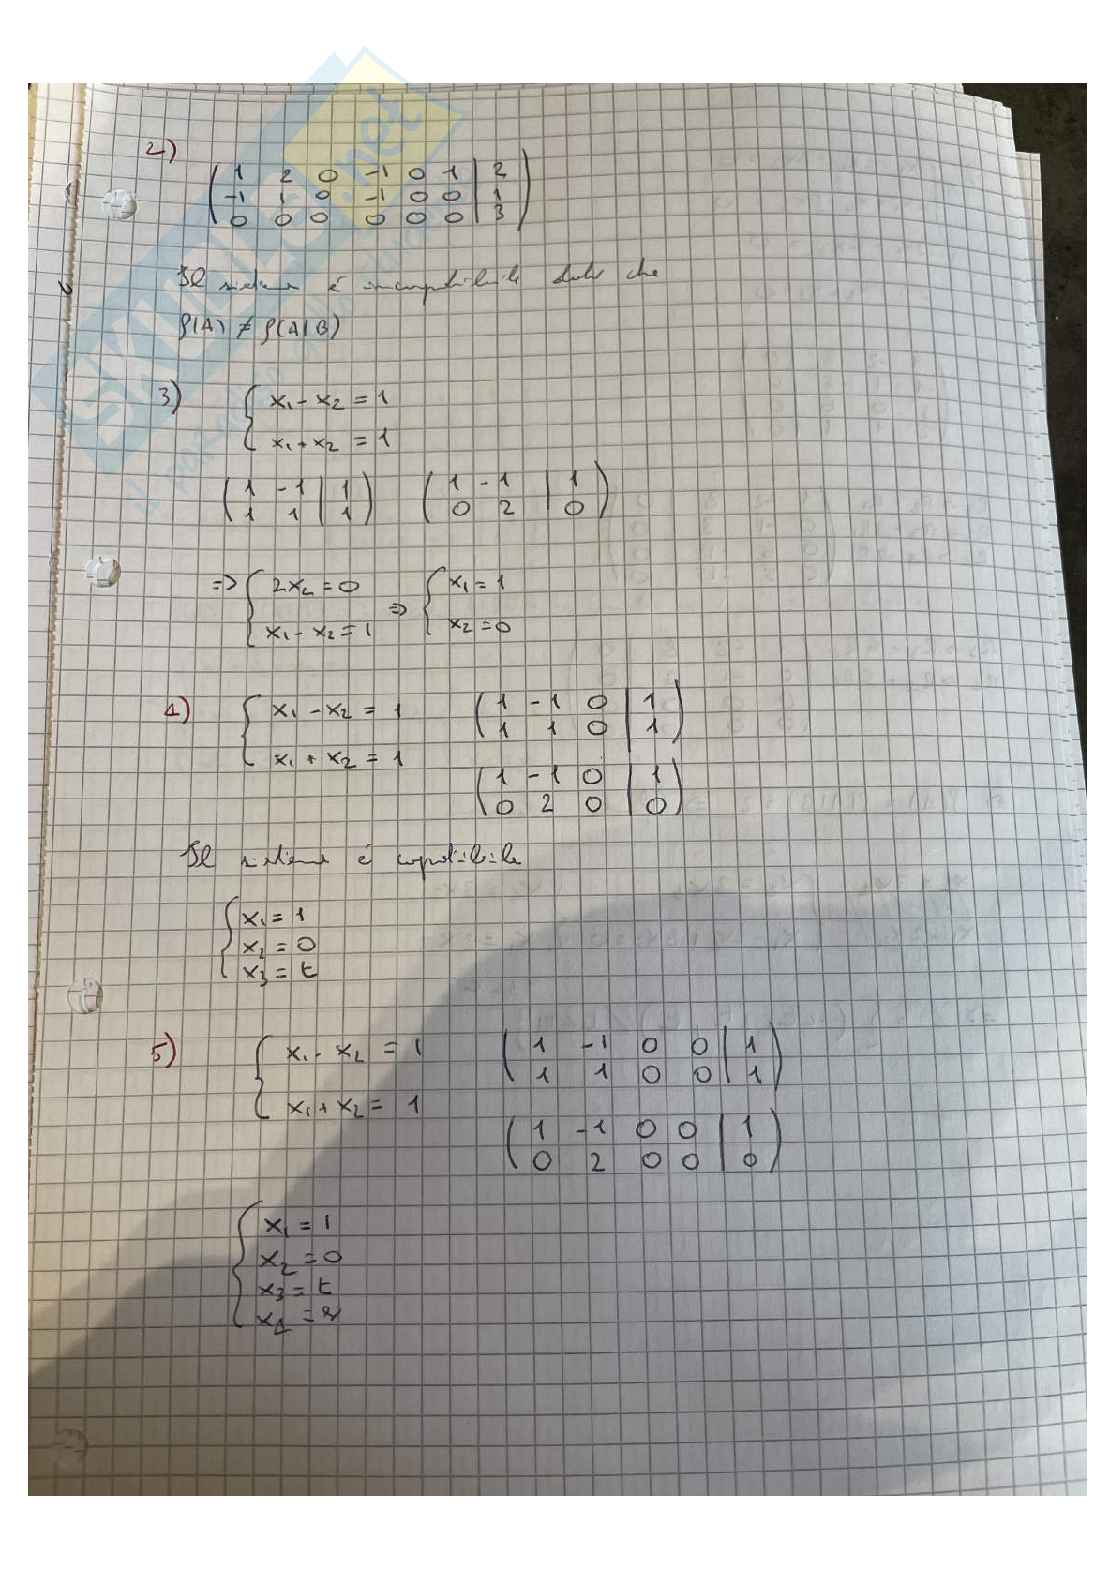 2)
( 1 2 0 -1 0 1 | 2 )
( -1 1 0 -1 0 0 | 1 )
( 0 0 0 0 0 0 | 3 )
Il sistema é incompatibile dato che
ρ(A) ≠ ρ(A|B)
3) { x₁ - x₂ = 1
x₁ + x₂ = 1
( 1 -1 | 1 ) ( 1 -1 | 1 )
( 1 1 | 1 ) ( 0 2 | 0 )
=> { 2x₂ = 0 => { x₁ = 1
x₁ - x₂ = 1 x₂ = 0
4) { x₁ - x₂ = 1 ( 1 -1 0 | 1 )
( 1 1 0 | 1 )
x₁ + x₂ = 1
( 1 -1 0 | 1 )
( 0 2 0 | 0 )
Il sistema é compatibile
{ x₁ = 1
x₂ = 0
x₃ = t
5) { x₁ - x₂ = 1 ( 1 -1 0 0 | 1 )
( 1 1 0 0 | 1 )
x₁ + x₂ = 1
( 1 -1 0 0 | 1 )
( 0 2 0 0 | 0 )
{ x₁ = 1
x₂ = 0
x₃ = t
x₄ =
SKUOLA.net